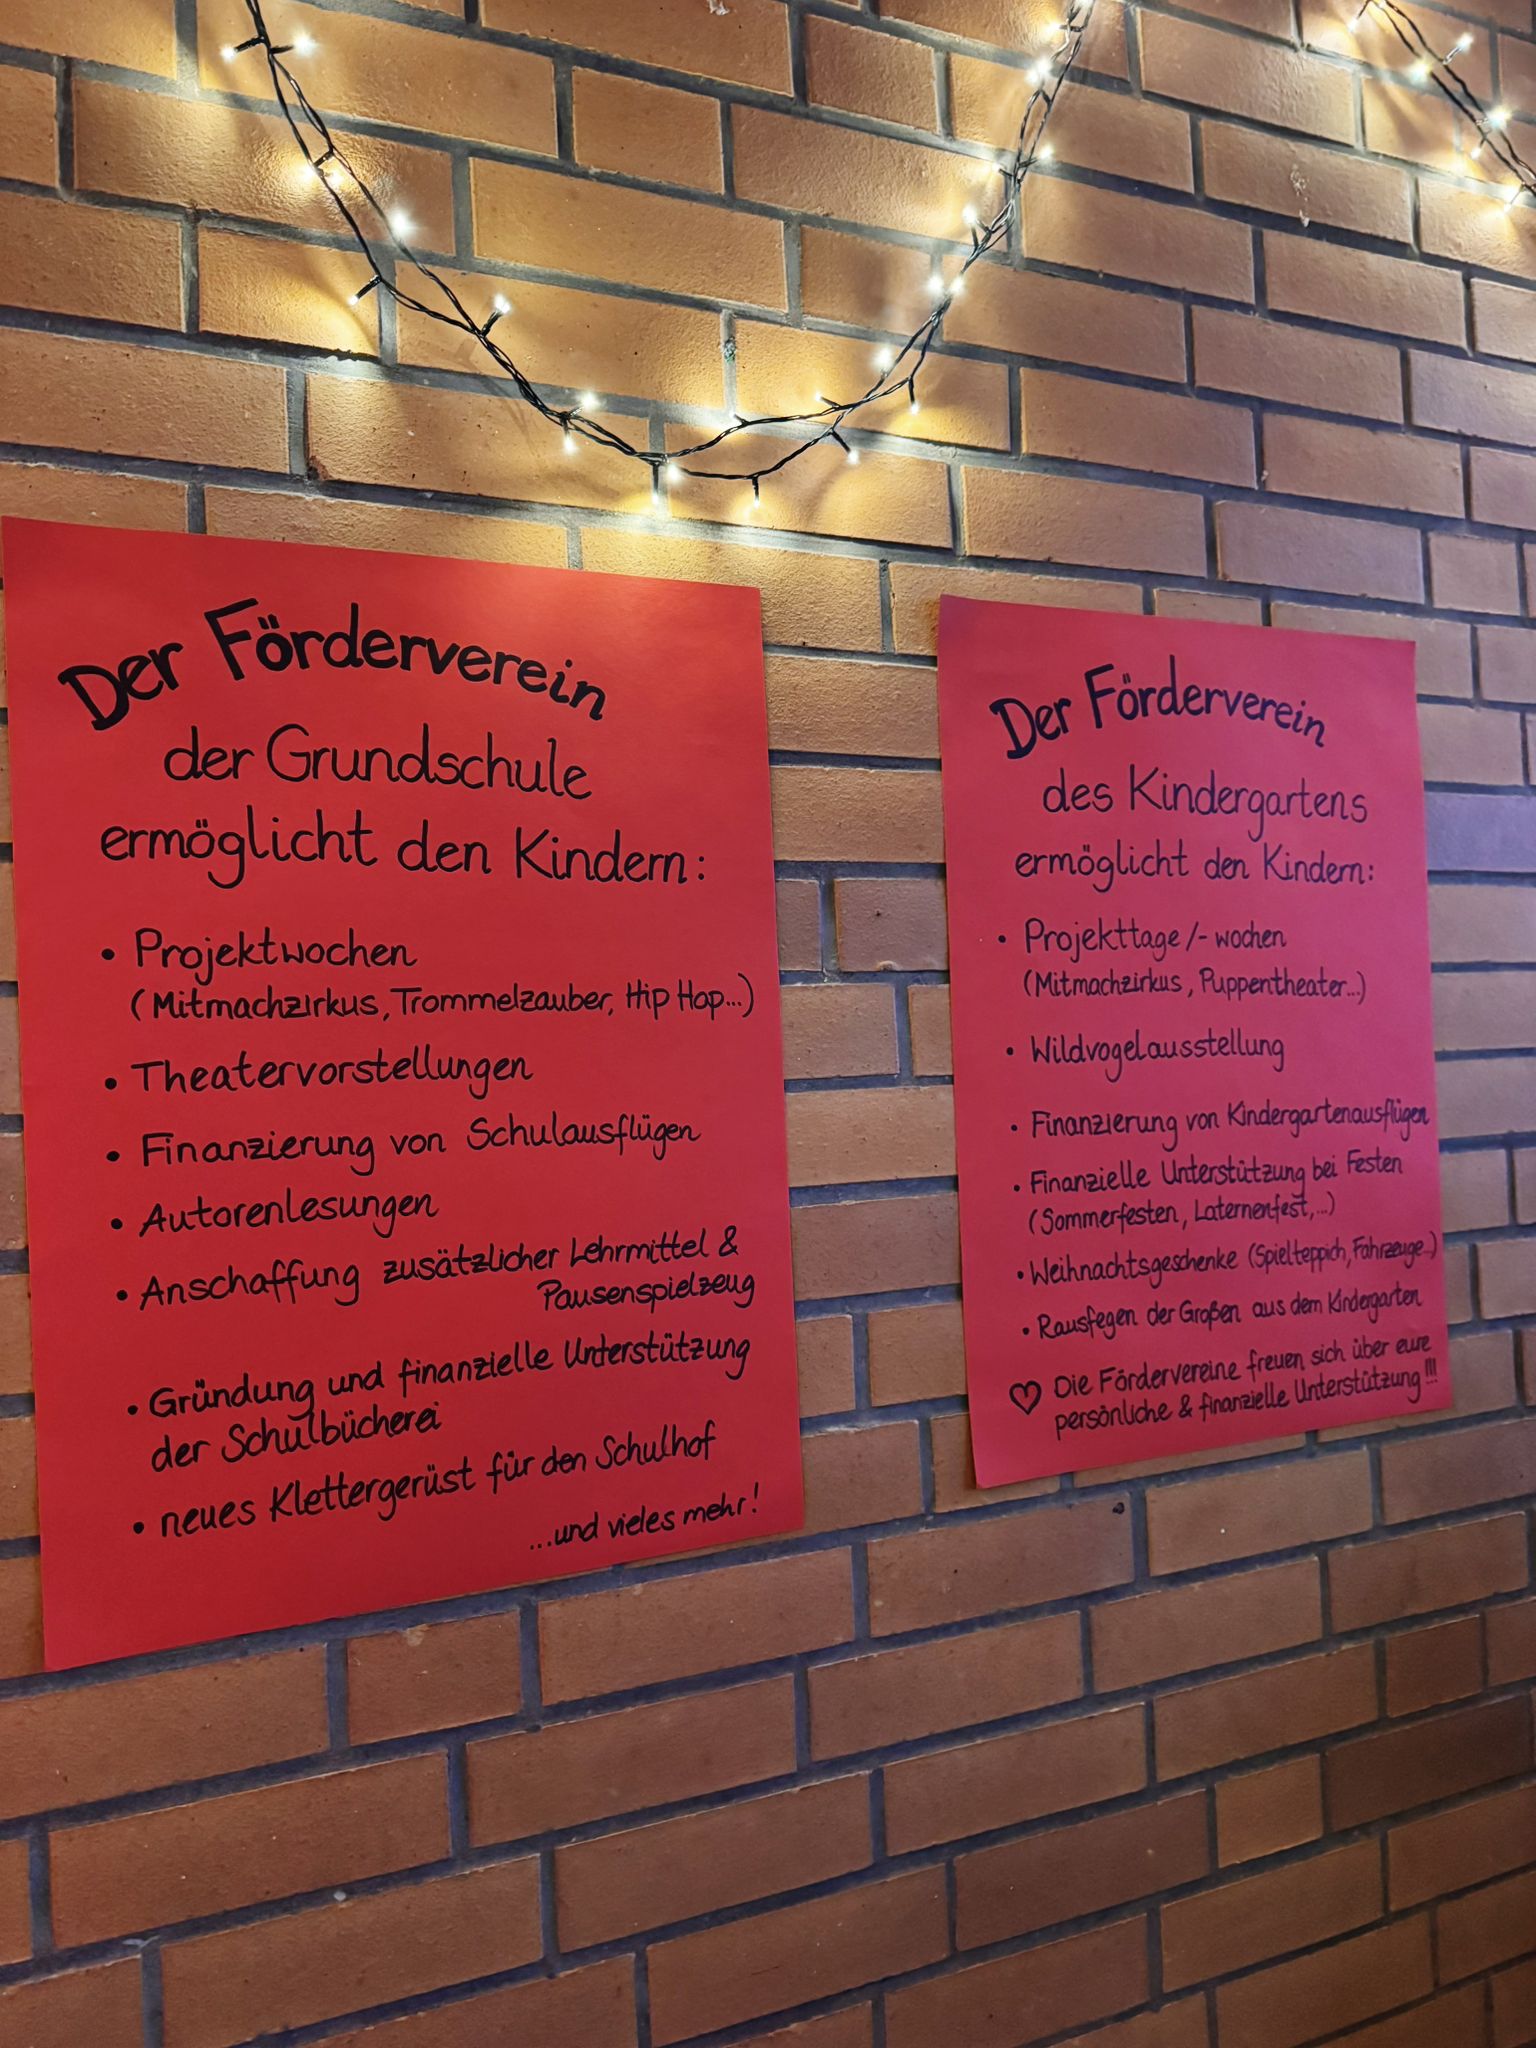 Der Förderverein
der Grundschule
ermöglicht den Kindern:
• Projektwochen
(Mitmachzirkus, Trommelzauber, Hip Hop...)
• Theatervorstellungen
• Finanzierung von Schulausflügen
• Autorenlesungen
• Anschaffung zusätzlicher Lehrmittel &
Pausenspielzeug
• Gründung und finanzielle Unterstützung
der Schulbücherei
• neues Klettergerüst für den Schulhof
...und vieles mehr!
Der Förderverein
des Kindergartens
ermöglicht den Kindern:
• Projekttage /- wochen
(Mitmachzirkus, Puppentheater...)
• Wildvogelausstellung
• Finanzierung von Kindergartenausflügen
• Finanzielle Unterstützung bei Festen
(Sommerfesten, Laternenfest,...)
• Weihnachtsgeschenke (Spielteppich, Fahrzeuge...)
• Rausfegen der Großen aus dem Kindergarten
♡ Die Fördervereine freuen sich über eure
persönliche & finanzielle Unterstützung!!!